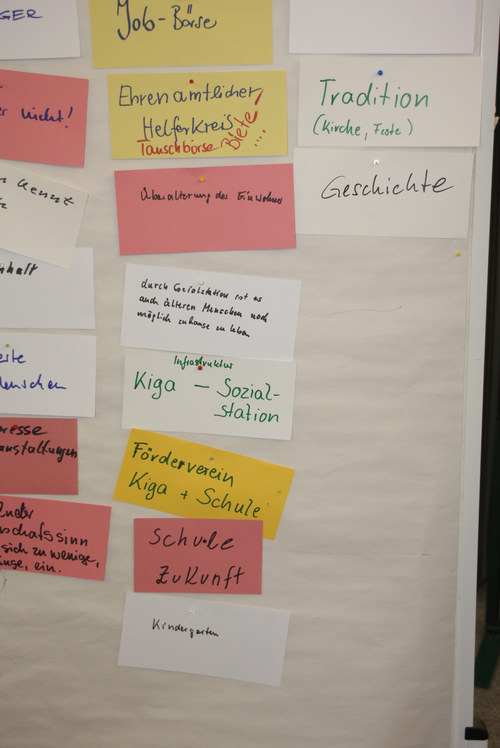 GER
nicht!
kennt
nhalt
Menschen
resse
anstaltungen
nschaftssinn
sich zu wenige,
ein.
Job-Börse
Ehrenamtlicher
Helferkreis
Tauschbörse
Biete!
....
Überalterung der Einwohner
durch Sozialstation ist es
auch älteren Menschen noch
möglich zuhause zu leben
Infrastruktur
Kiga – Sozial-
station
Förderverein
Kiga + Schule
Schule
Zukunft
Kindergarten
Tradition
(Kirche, Feste)
Geschichte